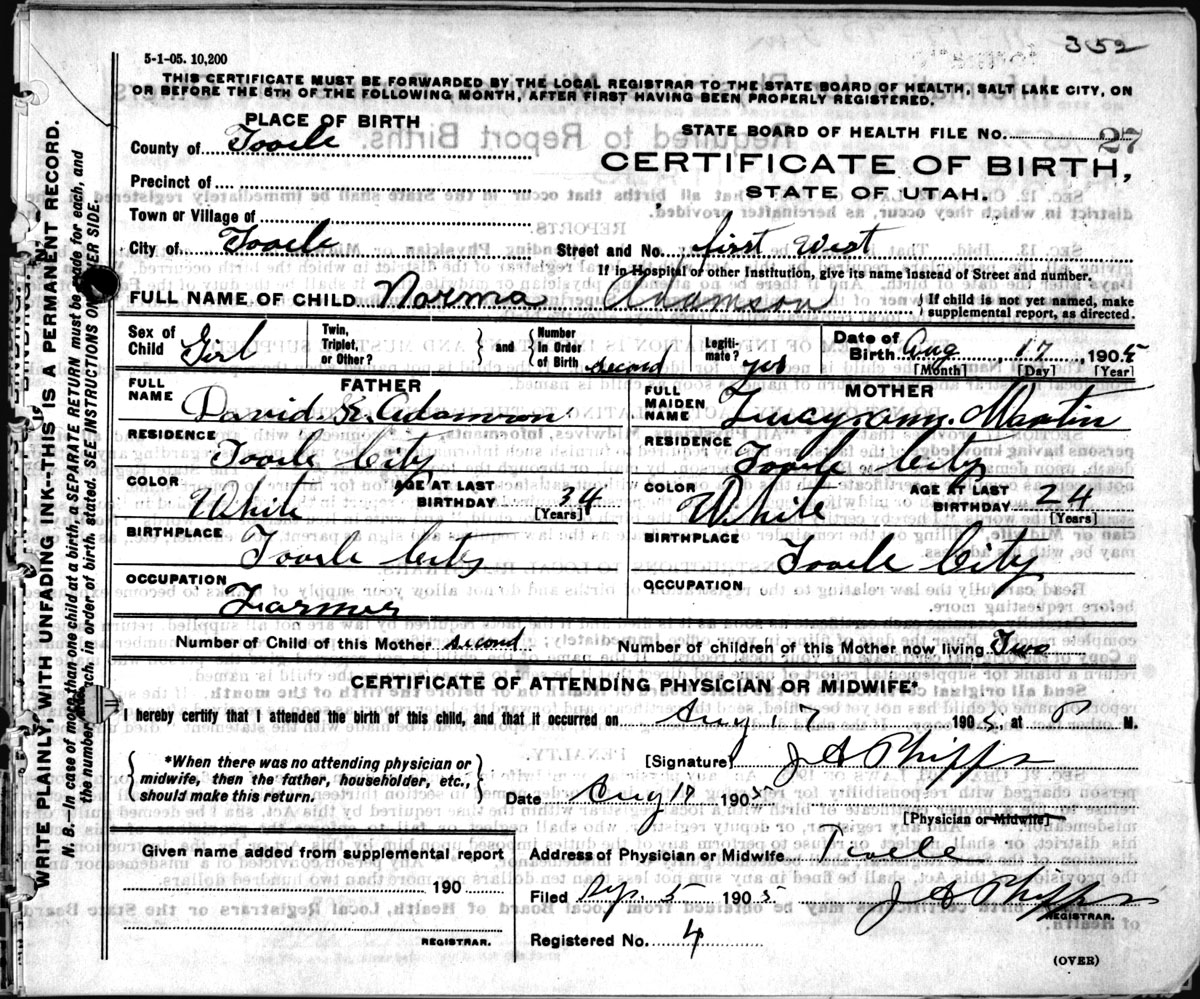 3152
5-1-05. 10,200
THIS CERTIFICATE MUST BE FORWARDED BY THE LOCAL REGISTRAR TO THE STATE BOARD OF HEALTH, SALT LAKE CITY, ON
OR BEFORE THE 5TH OF THE FOLLOWING MONTH, AFTER FIRST HAVING BEEN PROPERLY REGISTERED.
PLACE OF BIRTH
STATE BOARD OF HEALTH FILE No. 27
County of Tooele
CERTIFICATE OF BIRTH,
STATE OF UTAH.
Precinct of
Town or Village of
City of Tooele Street and No. first West
If in Hospital or other Institution, give its name instead of Street and number.
FULL NAME OF CHILD Norma Adamson { If child is not yet named, make supplemental report, as directed.
Sex of Child Girl Twin, Triplet, or Other? } and { Number in Order of Birth second Legitimate? yes Date of Birth Aug 17, 1905
[Month] [Day] [Year]
FATHER
FULL NAME David K. Adamson
RESIDENCE Tooele City
COLOR White AGE AT LAST BIRTHDAY 34
[Years]
BIRTHPLACE Tooele City
OCCUPATION Farmer
MOTHER
FULL MAIDEN NAME Martin
RESIDENCE Tooele City
COLOR White AGE AT LAST BIRTHDAY 24
[Years]
BIRTHPLACE Tooele City
OCCUPATION
Number of Child of this Mother second Number of children of this Mother now living Two
CERTIFICATE OF ATTENDING PHYSICIAN OR MIDWIFE*
I hereby certify that I attended the birth of this child, and that it occurred on Aug 17 1905, at P M.
{ *When there was no attending physician or midwife, then the father, householder, etc., should make this return. }
[Signature] J A Phipps
Date Aug 17 1905
[Physician or Midwife]
Given name added from supplemental report
190
REGISTRAR.
Address of Physician or Midwife Tooele
Filed Sep. 5 1905 J A Phipps
REGISTRAR.
Registered No. 4
(OVER)
WRITE PLAINLY, WITH UNFADING INK--THIS IS A PERMANENT RECORD.
N. B.—In case of more than one child at a birth, a SEPARATE RETURN must be made for each, and
the number each, in order of birth, stated. SEE INSTRUCTIONS ON OTHER SIDE.